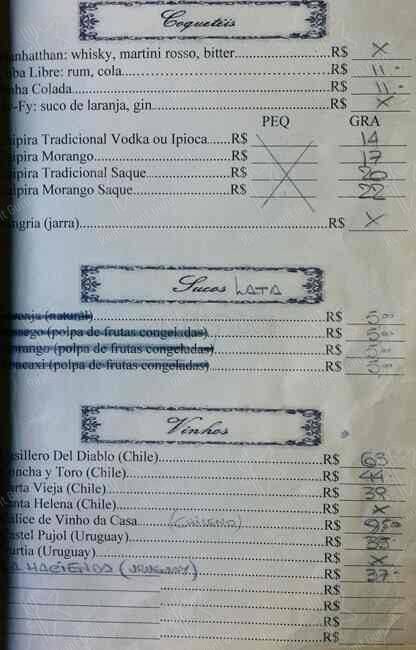 Coquetéis
anhatthan: whisky, martini rosso, bitter....................R$ X
ba Libre: rum, cola....................R$ 11.-
nha Colada....................R$ 11.-
y-Fy: suco de laranja, gin....................R$ X
PEQ GRA
ipira Tradicional Vodka ou Ipioca.......R$ 14
ipira Morango....................R$ 17
ipira Tradicional Saque....................R$ 20
ipira Morango Saque....................R$ 22
ngria (jarra)....................R$ X
Sucos LATA
(natural)....................R$ 5,00
(polpa de frutas congeladas)....................R$ 5,00
rango (polpa de frutas congeladas)....................R$ 5,00
acaxi (polpa de frutas congeladas)....................R$ 5,00
Vinhos
sillero Del Diablo (Chile)....................R$ 63
oncha y Toro (Chile)....................R$ 44
rta Vieja (Chile)....................R$ 38
anta Helena (Chile)....................R$ X
alice de Vinho da Casa (CHILENO)....................R$
astel Pujol (Uruguay)....................R$ 35-
urtia (Uruguay)....................R$ X
HACIENDA (URUGUAY) R$ 37-
R$
R$
R$
R$